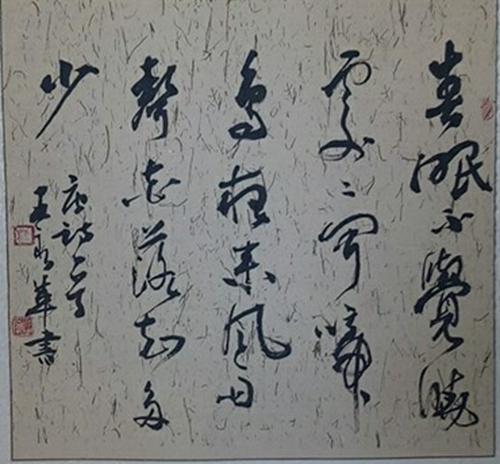 春眠不覺曉
處〻聞啼
鳥夜來風雨
聲花落知多
少
唐詩一首
王 華書